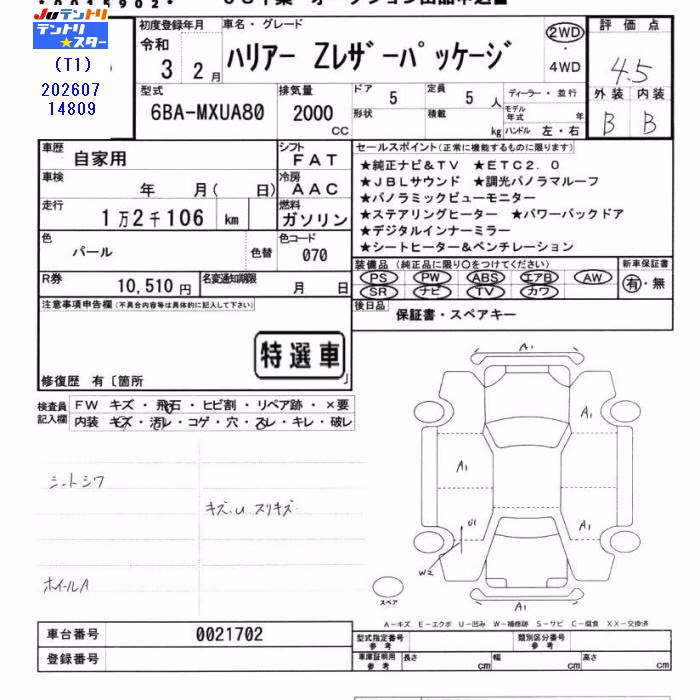 JUテントリ
テントリ★スター
(T1)
202607
14809
初度登録年月
令和
3 2月
車名・グレード
ハリアー Zレザーパッケージ
2WD
・
4WD
評価点
4.5
外装 内装
B B
型式
6BA-MXUA80
排気量
2000
CC
ドア
5
定員
5 人
形状
積載
kg
ディーラー・並行
モデル年式 年
ハンドル 左・右
車歴
自家用
シフト
FAT
車検
年 月( 日)
冷房
AAC
走行
1万2千106 km
燃料
ガソリン
色
パール
色替
色コード
070
R券
10,510円
名変通知期限
月 日
セールスポイント(正常に機能するものに限ります)
★純正ナビ&TV ★ETC2.0
★JBLサウンド ★調光パノラマルーフ
★パノラミックビューモニター
★ステアリングヒーター ★パワーバックドア
★デジタルインナーミラー
★シートヒーター&ベンチレーション
装備品(純正品に限り○をつけてください)
PS PW ABS エアB AW
SR ナビ TV カワ
新車保証書
有・無
後日品
保証書・スペアキー
注意事項申告欄(不具合内容等は具体的に記入して下さい)
特選車
修復歴 有〔箇所 〕
検査員記入欄
FW キズ・飛石・ヒビ割・リペア跡・×要
内装 キズ・汚レ・コゲ・穴・スレ・キレ・破レ
シートシワ
キズ.U スリキズ
ホイールA
A1
A1
A1
U1
A1
W2
A1
スペア
A-キズ E-エクボ U-凹み W-補修跡 S-サビ C-腐食 XX-交換済
車台番号 0021702
登録番号
型式指定番号 参考
類別区分番号 参考
車庫証明用 参考
長さ cm
幅 cm
高さ cm